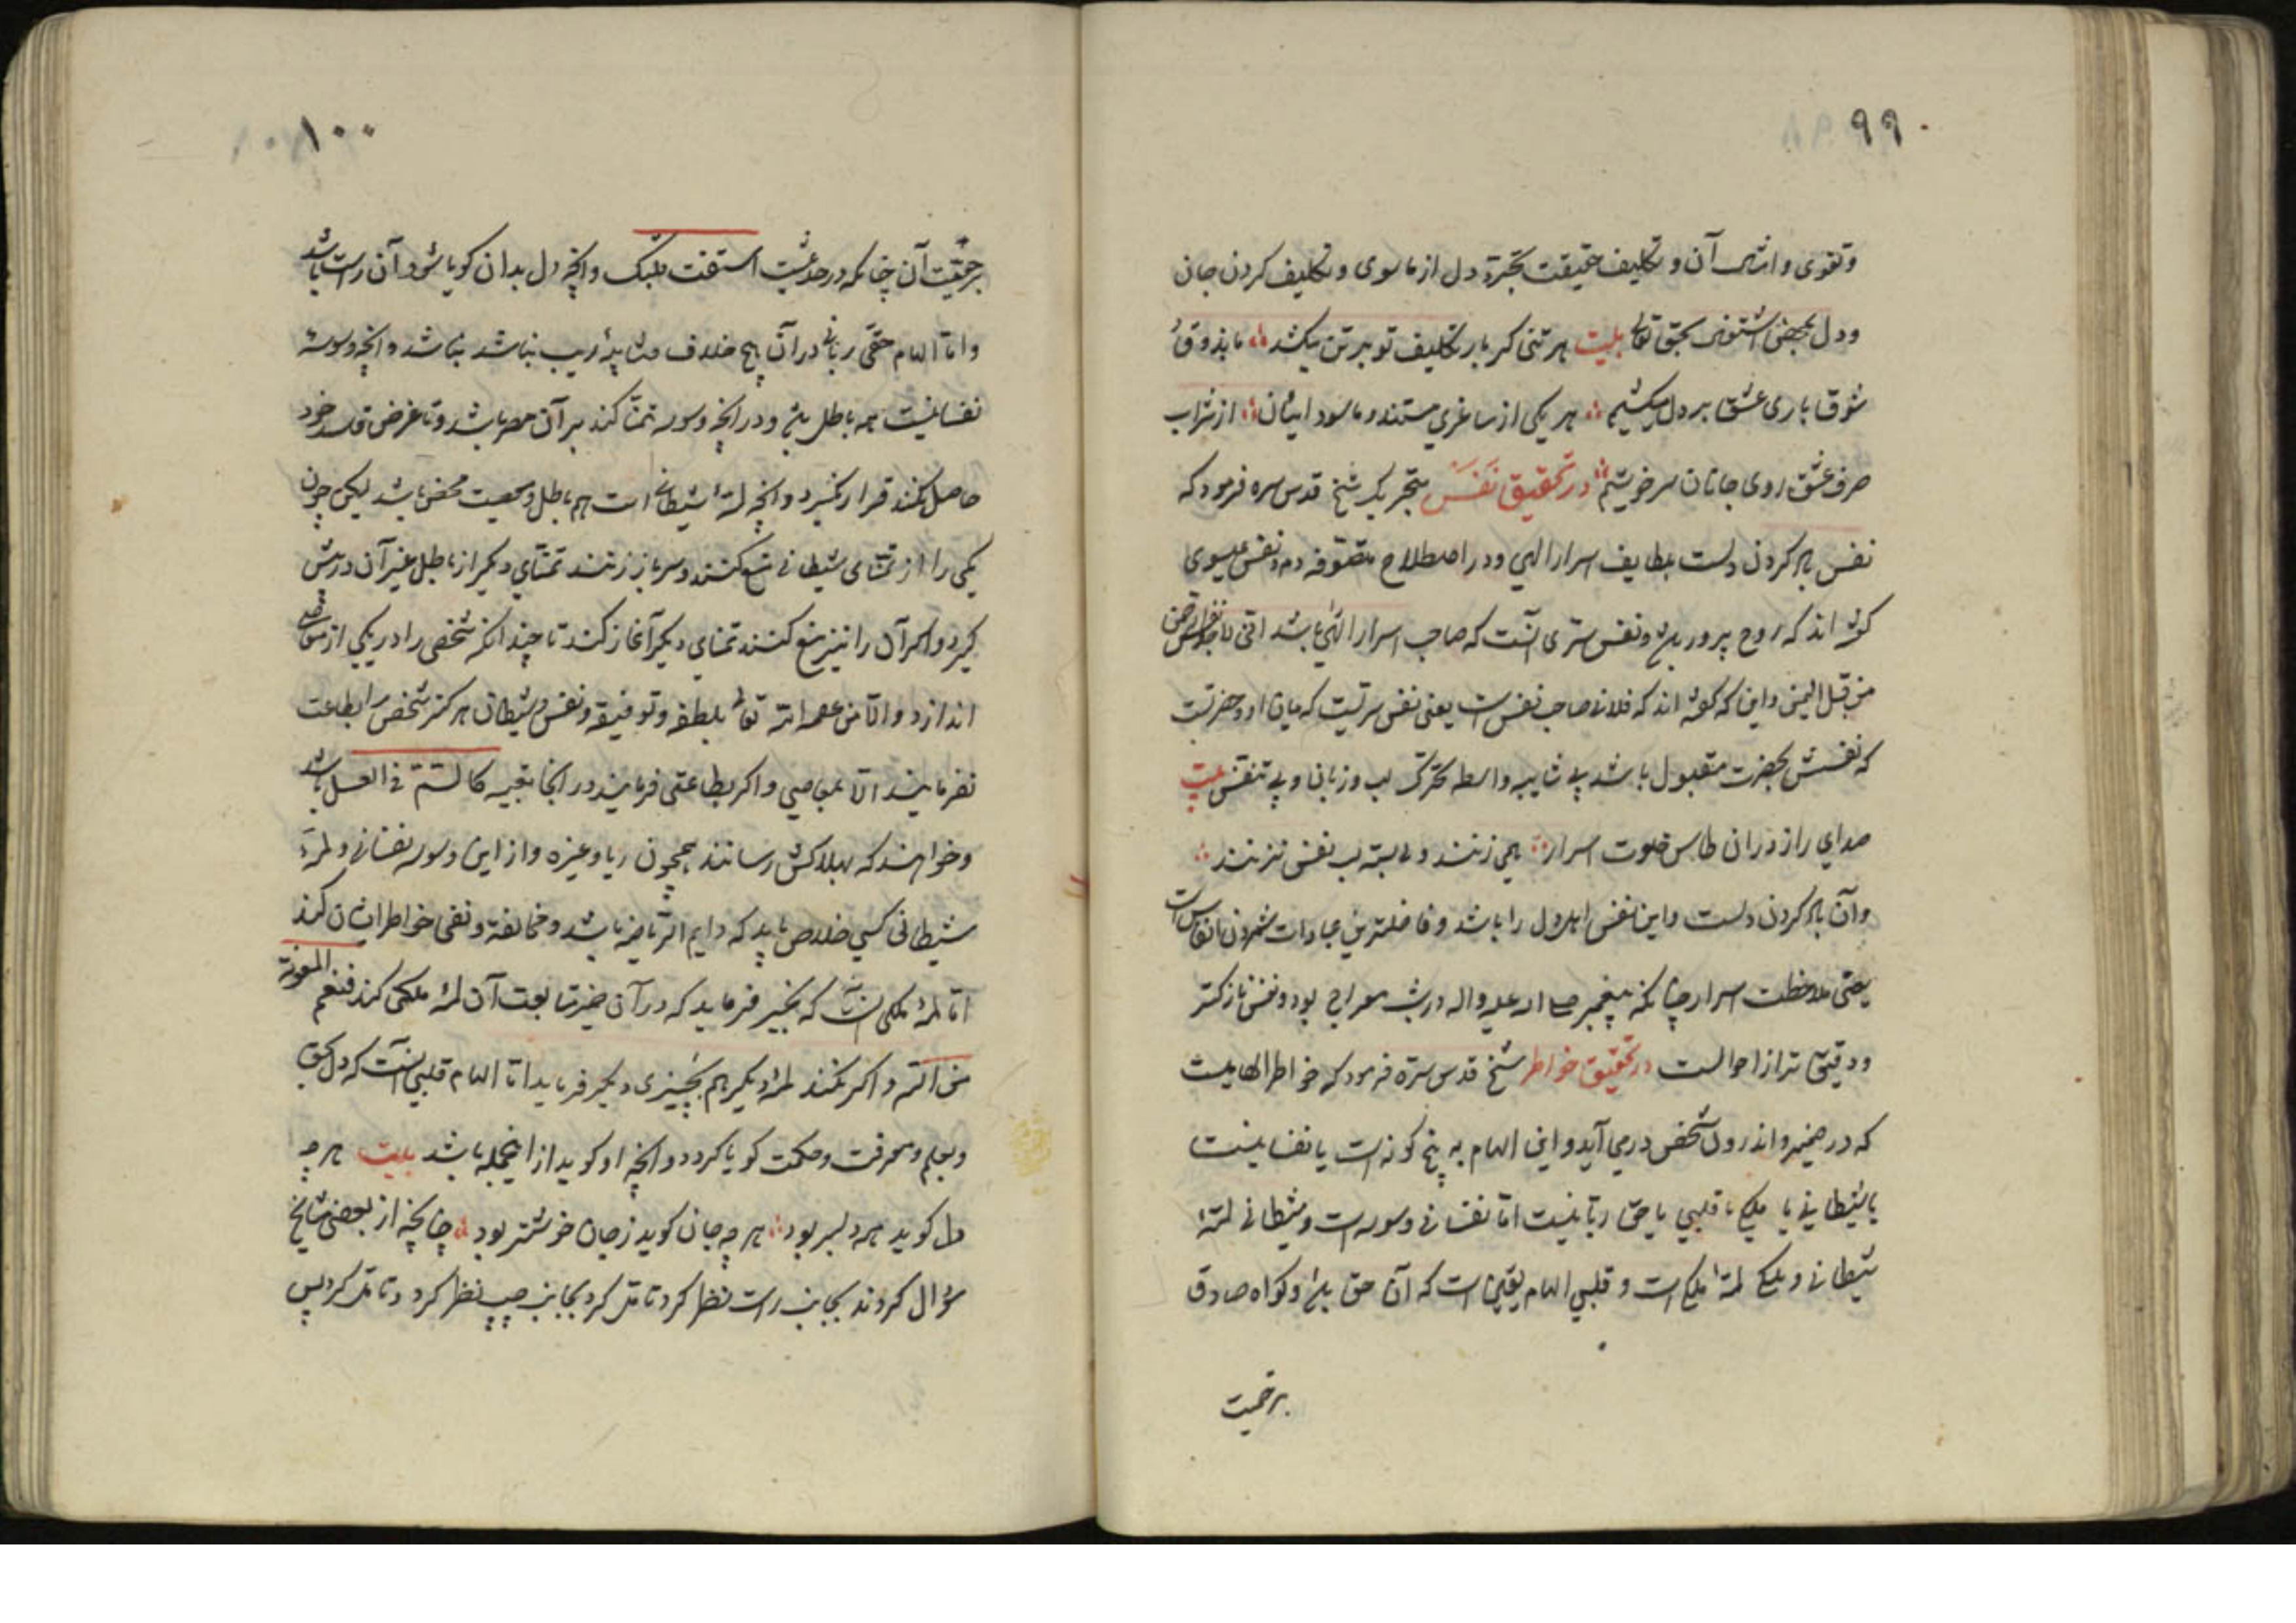 ۹۹
و تقوی و امثال آن و تکلیف حقیقت تجرّد دل از ماسوی و تکلیف کردن جان
و دل بحق تعالی بیت هر تنی کر بار تکلیف تو برتن میکشد ما بذوق
شوق باری عشق بر دل میکشیم هر یکی از ساغری مستند و ما سود ایشان از شراب
صرف عشق روی جانان سرخوشیم در تحقیق نَفَس شیخ قدس سره فرمود که
نفس پاک کردن دلست بلطایف اسرار الهی و در اصطلاح متصوفه دم و نفس عیسوی
گفته اند که روح پرور بود و نفس سرّی آنست که صاحب اسرار الهی باشد انّی لاجد نفس الرحمن
من قبل الیمن و این که گفته اند که فلانی صاحب نفس است یعنی نفس سرّیست که میان او و حضرتست
که نفسش بحضرت مقبول باشد بی شایبه واسطه تحرک لب و زبان و بی تنفس بیت
صدای راز در آن طاس خلوت اسرار همی زنند و لب بسته نفس نزنند
و آن پاک کردن دلست و این نفس اهل دل را باشد و فاضلترین عبادات شمردن انفاس است
یعنی ملاحظت اسرار چنانکه پیغمبر صلی الله علیه و اله در شب معراج بود و نفس نازکتر
و دقیق تر از احوالست در تحقیق خواطر شیخ قدس سرّه فرمود که خواطر الهامیست
که در ضمیر و اندرون شخص درمی آید و این الهام به پنج گونه است یا نفسانیست
یا شیطانی یا ملکی یا قلبی یا حق ربّانیست امّا نفسانی وسوسه است و شیطانی لمّهٔ
شیطانی و ملکی لمّهٔ ملکی است و قلبی الهام یقین است که آن حق بود و گواه صادق
بر حقیت
۱۰۰
بر حقیّت آن چنانکه در حدیثست استفت قلبک و آنچه دل بدان گویا شود آن راست باشد
و امّا الهام حقّی ربانی در آن هیچ خلاف و شایبهٔ ریب نباشد و آنچه وسوسهٔ
نفسانیست همه باطل بود و در آنچه وسوسه تمنّا کند بر آن مصر باشد و تا غرض فاسد خود
حاصل نکند قرار نگیرد و آنچه لمّهٔ شیطانی است هم باطل و معصیت محض باشد لیکن چون
یکی را از تمنّای شیطانی منع کنند و سر باز زنند تمنّای دیگر از باطل غیر آن در پیش
گیرد و اگر آن را نیز منع کنند تمنای دیگر آغاز کند تا چندانکه شخص را در یکی از معاصی
اندازد و الّا من عصمه الله تعالی بلطفه و توفیقه و نفس و شیطان هرگز شخص را بطاعت
نفرمایند الّا بمعاصی و اگر بطاعتی فرمایند در آنجا تعبیه کالسّمّ فی العسل باشد
و خواهند که بهلاکش رسانند همچون ریا و غیره و از این وسوسه نفسانی و لمّهٔ
شیطانی کسی خلاص یابد که دایم الریاضه باشد و مخالفت و نفی خواطر ایشان کند
امّا لمّهٔ ملکی آنست که بخیر فرماید که در آن خیر متابعت آن لمّهٔ ملکی کند فنعم المعونة
من الله و اگر نکند لمّهٔ دیگر هم بچیزی دیگر فرماید امّا الهام قلبی آنست که دل بحق
و بعلم و معرفت و حکمت گویا گردد و آنچه او گوید از اینجمله باشد بیت هر چه
دل گوید همه دلبر بود هر چه جان گوید ز جان خوشتر بود چنانچه از بعضی مشایخ
سؤال کردند بجانب راست نظر کرد تأمل کرد بجانب چپ نظر کرد و تأمل کرد پس